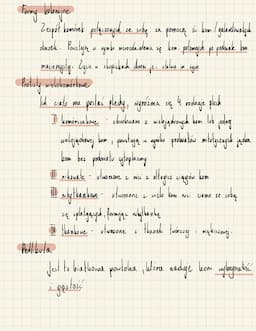 Formy kolonijne
Zespół komórek połączonych ze sobą za pomocą śc. kom / galaretowatych
otoczek. Powstają w wyniku nierozdzielenia się kom. potomnych po podziale kom
macierzystej. Życie w skupiskach
Protisty wielokomórkowe
Ich ciało ma postać plechy, wyróżnia się 4 rodzaje plech
I komórczakowe - zbudowane z wielojądrowych kom lub jednej
wielojądrowej kom, powstają w wyniku podziałów mitotycznych jądra
kom bez podziału cytoplazmy
II nitkowate - utworzone z nici z długich ciągów kom
III nibytkankowe - utworzone z wielu kom nici ciasno ze sobą
się splatających, formując nibytkankę
IV tkankowe - utworzone z tkanek twórczej i miękiszowej.
Pellikula
Jest to białkowa powłoka, która nadaje kom
i gęstość